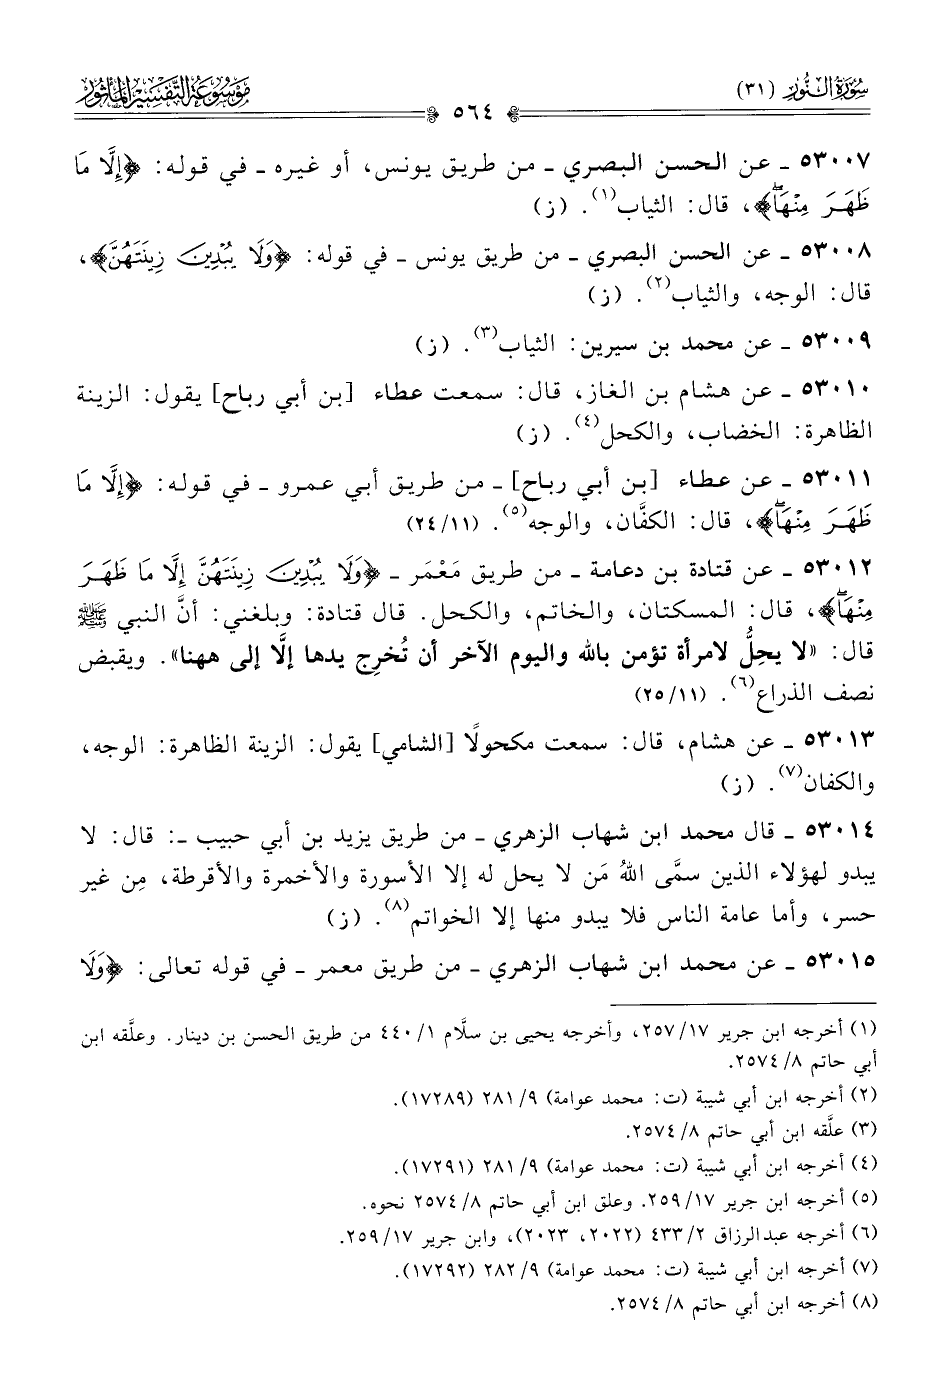 سُورَةُ النُّورِ (٣١)
مَوْسُوعَةُ التَّفْسِيرِ المَأْثُورِ
٥٦٤
٥٣٠٠٧ ـ عن الحسن البصري ـ من طريق يونس، أو غيره ـ في قوله: ﴿إِلَّا مَا
ظَهَرَ مِنْهَاۖ﴾، قال: الثياب(١). (ز)
٥٣٠٠٨ ـ عن الحسن البصري ـ من طريق يونس ـ في قوله: ﴿وَلَا يُبْدِينَ زِينَتَهُنَّ﴾،
قال: الوجه، والثياب(٢). (ز)
٥٣٠٠٩ ـ عن محمد بن سيرين: الثياب(٣). (ز)
٥٣٠١٠ ـ عن هشام بن الغاز، قال: سمعت عطاء [بن أبي رباح] يقول: الزينة
الظاهرة: الخضاب، والكحل(٤). (ز)
٥٣٠١١ ـ عن عطاء [بن أبي رباح] ـ من طريق أبي عمرو ـ في قوله: ﴿إِلَّا مَا
ظَهَرَ مِنْهَاۖ﴾، قال: الكفَّان، والوجه(٥). (٢٤/١١)
٥٣٠١٢ ـ عن قتادة بن دعامة ـ من طريق مَعْمَر ـ ﴿وَلَا يُبْدِينَ زِينَتَهُنَّ إِلَّا مَا ظَهَرَ
مِنْهَاۖ﴾، قال: المسكتان، والخاتم، والكحل. قال قتادة: وبلغني: أنَّ النبي ﷺ
قال: «لا يحِلُّ لامرأة تؤمن بالله واليوم الآخر أن تُخرِج يدها إلَّا إلى ههنا». ويقبض
نصف الذراع(٦). (٢٥/١١)
٥٣٠١٣ ـ عن هشام، قال: سمعت مكحولًا [الشامي] يقول: الزينة الظاهرة: الوجه،
والكفان(٧). (ز)
٥٣٠١٤ ـ قال محمد ابن شهاب الزهري ـ من طريق يزيد بن أبي حبيب ـ: قال: لا
يبدو لهؤلاء الذين سمَّى اللهُ مَن لا يحل له إلا الأسورة والأخمرة والأقرطة، مِن غير
حسر، وأما عامة الناس فلا يبدو منها إلا الخواتم(٨). (ز)
٥٣٠١٥ ـ عن محمد ابن شهاب الزهري ـ من طريق معمر ـ في قوله تعالى: ﴿وَلَا
(١) أخرجه ابن جرير ١٧/ ٢٥٧، وأخرجه يحيى بن سلَّام ١/ ٤٤٠ من طريق الحسن بن دينار. وعلَّقه ابن
أبي حاتم ٨/ ٢٥٧٤.
(٢) أخرجه ابن أبي شيبة (ت: محمد عوامة) ٩/ ٢٨١ (١٧٢٨٩).
(٣) علَّقه ابن أبي حاتم ٨/ ٢٥٧٤.
(٤) أخرجه ابن أبي شيبة (ت: محمد عوامة) ٩/ ٢٨١ (١٧٢٩١).
(٥) أخرجه ابن جرير ١٧/ ٢٥٩. وعلق ابن أبي حاتم ٨/ ٢٥٧٤ نحوه.
(٦) أخرجه عبد الرزاق ٢/ ٤٣٣ (٢٠٢٢، ٢٠٢٣)، وابن جرير ١٧/ ٢٥٩.
(٧) أخرجه ابن أبي شيبة (ت: محمد عوامة) ٩/ ٢٨٢ (١٧٢٩٢).
(٨) أخرجه ابن أبي حاتم ٨/ ٢٥٧٤.